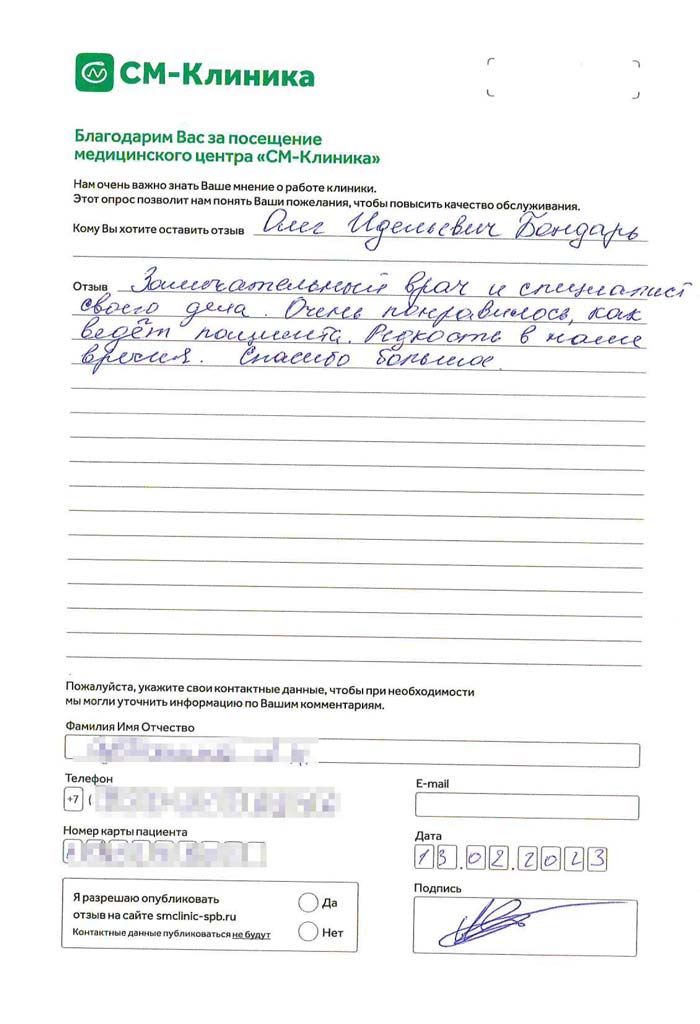 СМ-Клиника
Благодарим Вас за посещение
медицинского центра «СМ-Клиника»
Нам очень важно знать Ваше мнение о работе клиники.
Этот опрос позволит нам понять Ваши пожелания, чтобы повысить качество обслуживания.
Кому Вы хотите оставить отзыв Олег Идельевич Бондарь
Отзыв Замечательный врач и специалист
своего дела. Очень понравилось, как
ведёт пациента. Редкость в наше
время. Спасибо большое.
Пожалуйста, укажите свои контактные данные, чтобы при необходимости
мы могли уточнить информацию по Вашим комментариям.
Фамилия Имя Отчество
Телефон
E-mail
+7 (
Номер карты пациента
Дата
13.02.2023
Подпись
Я разрешаю опубликовать
отзыв на сайте smclinic-spb.ru
Контактные данные публиковаться не будут
Да
Нет